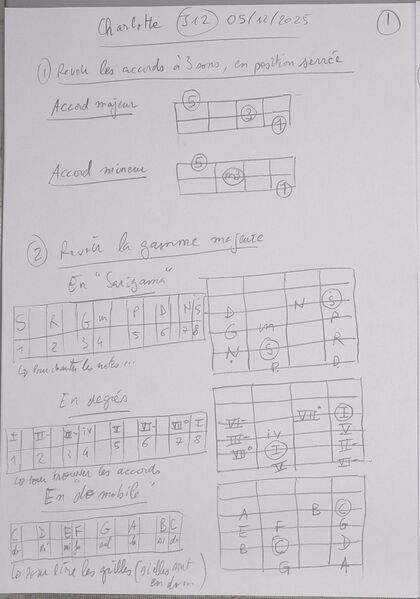 Charlotte J12 05/12/2025 1
1 Revoir les accords à 3 sons, en position serrée
Accord majeur
5
3
1
Accord mineur
5
m3
1
2 Revoir la gamme majeure
En "Sarigama"
S R G m P D N Ṡ
1 2 3 4 5 6 7 8
↳ pour chanter les notes...
D N Ṡ
G m P
Ṇ S R
P. D.
En degrés
I II- III- IV V VI- VII° I
1 2 3 4 5 6 7 8
↳ pour trouver les accords
VI- VII° I
III- IV V
VII° I II-
V VI-
En "do mobile"
C D E F G A B C
do ré mi fa sol la si do
↳ pour lire les grilles (si elles sont
en do...
A B C
E F G
B C D
G A